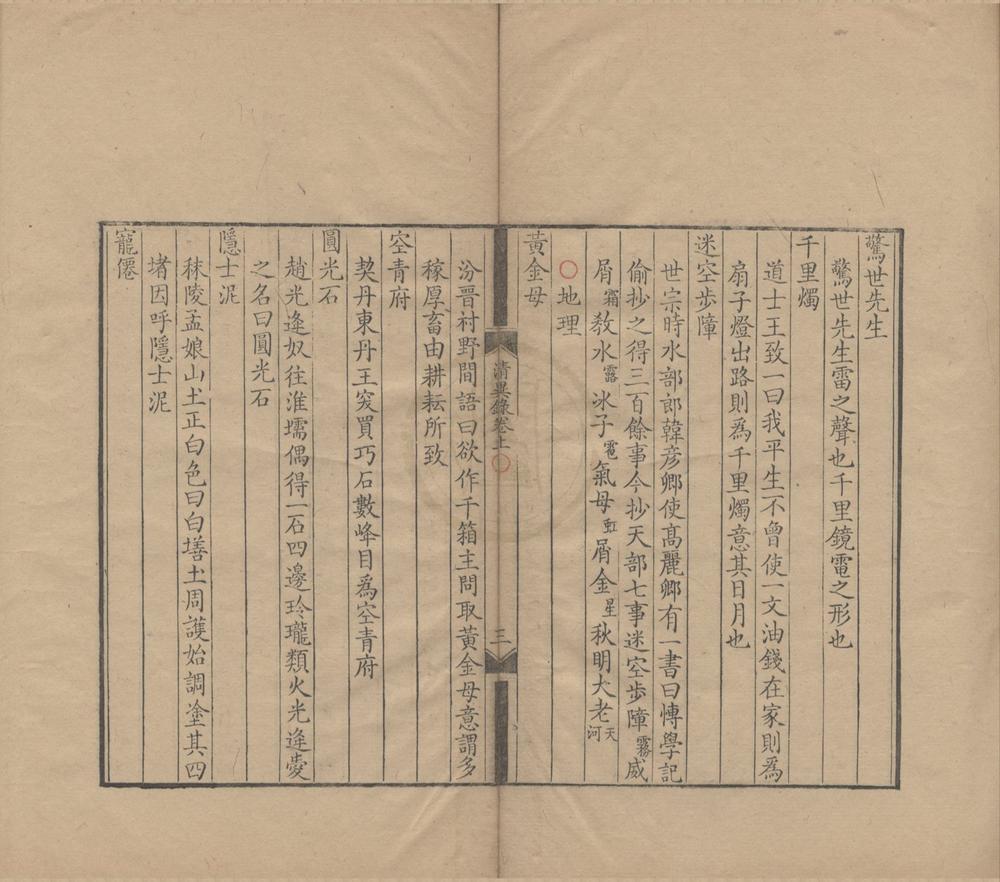 驚世先生
驚世先生雷之聲也千里鏡電之形也
千里燭
道士王致一曰我平生不曾使一文油錢在家則為
扇子燈出路則為千里燭意其日月也
迷空步障
世宗時水部郎韓彥卿使高麗卿有一書曰博學記
偷抄之得三百餘事今抄天部七事迷空步障霧威
屑霜教水露冰子雹氣母虹屑金星秋明大老天河
○地理
黃金母
清異錄卷上○ 三
汾晉村野間語曰欲作千箱主問取黃金母意謂多
稼厚畜由耕耘所致
空青府
契丹東丹王突買巧石數峰目為空青府
圓光石
趙光逢奴往淮壖偶得一石四邊玲瓏類火光逢愛
之名曰圓光石
隱士泥
秣陵孟娘山土正白色曰白墡土周護始調塗其四
堵因呼隱士泥
寵僊